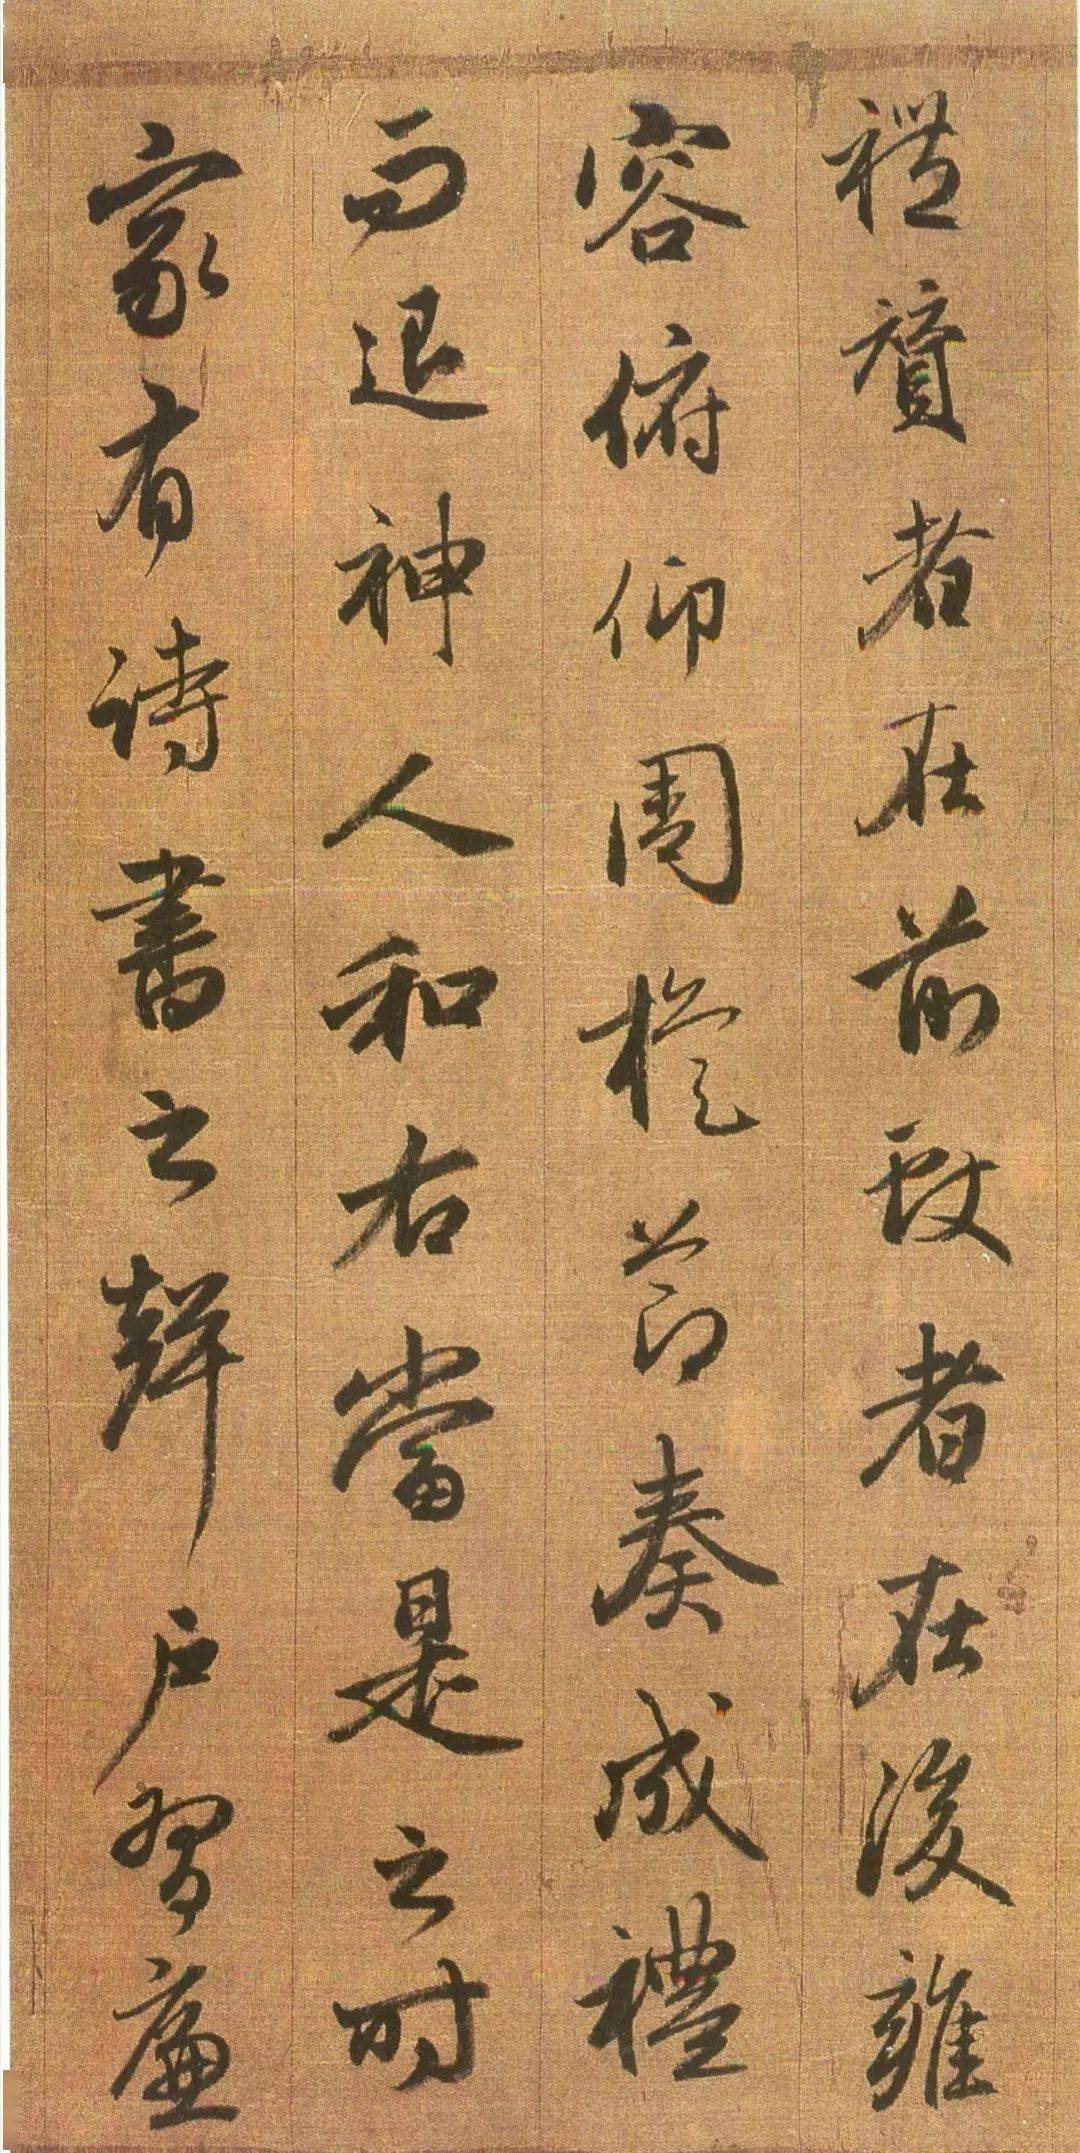 禮贊者在前致者在後雍
容俯仰周旋節奏成禮
而退神人和右當是之時
家有詩書之聲户習廉